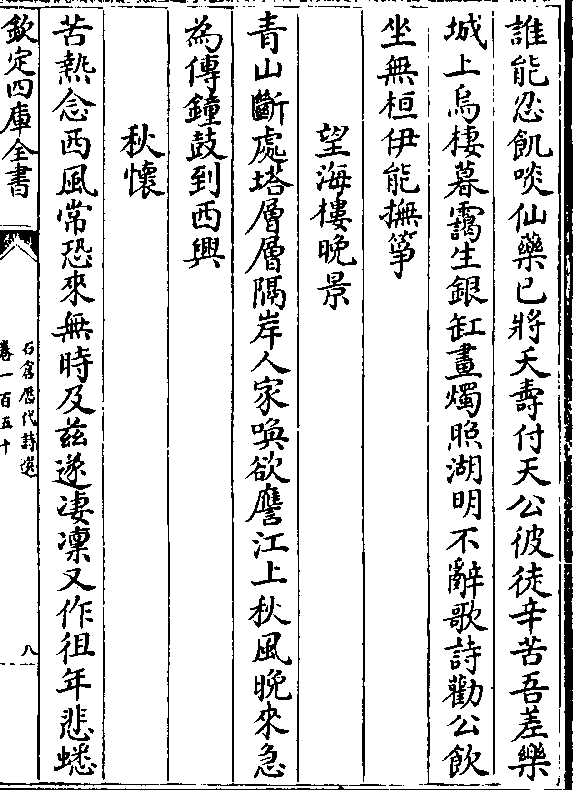 誰能忍飢啖仙藥已將夭壽付天公彼徒辛苦吾差樂
城上烏棲暮靄生銀缸畫燭照湖明不辭歌詩勸公飲
坐無桓伊能撫箏
望海樓晚景
青山斷處塔層層隔岸人家喚欲譍江上秋風晚來急
為傳鐘鼓到西興
秋懷
苦熱念西風常恐來無時及茲遂凄凜又作徂年悲蟋
欽定四庫全書
石倉歷代詩選
卷一百五十
八